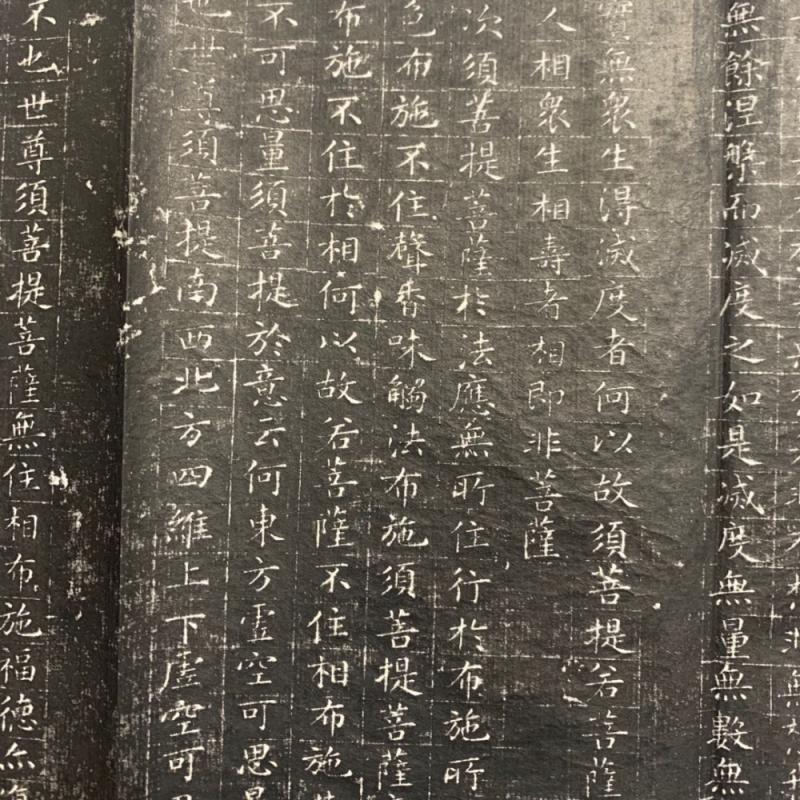 無餘涅槃而滅度之如是滅度無量無數無
無眾生得滅度者何以故須菩提若菩薩
人相眾生相壽者相即非菩薩
次須菩提菩薩於法應無所住行於布施所
色布施不住聲香味觸法布施須菩提菩薩
布施不住於相何以故若菩薩不住相布施
不可思量須菩提於意云何東方虛空可思
也世尊須菩提南西北方四維上下虛空可
不也世尊須菩提菩薩無住相布施福德亦